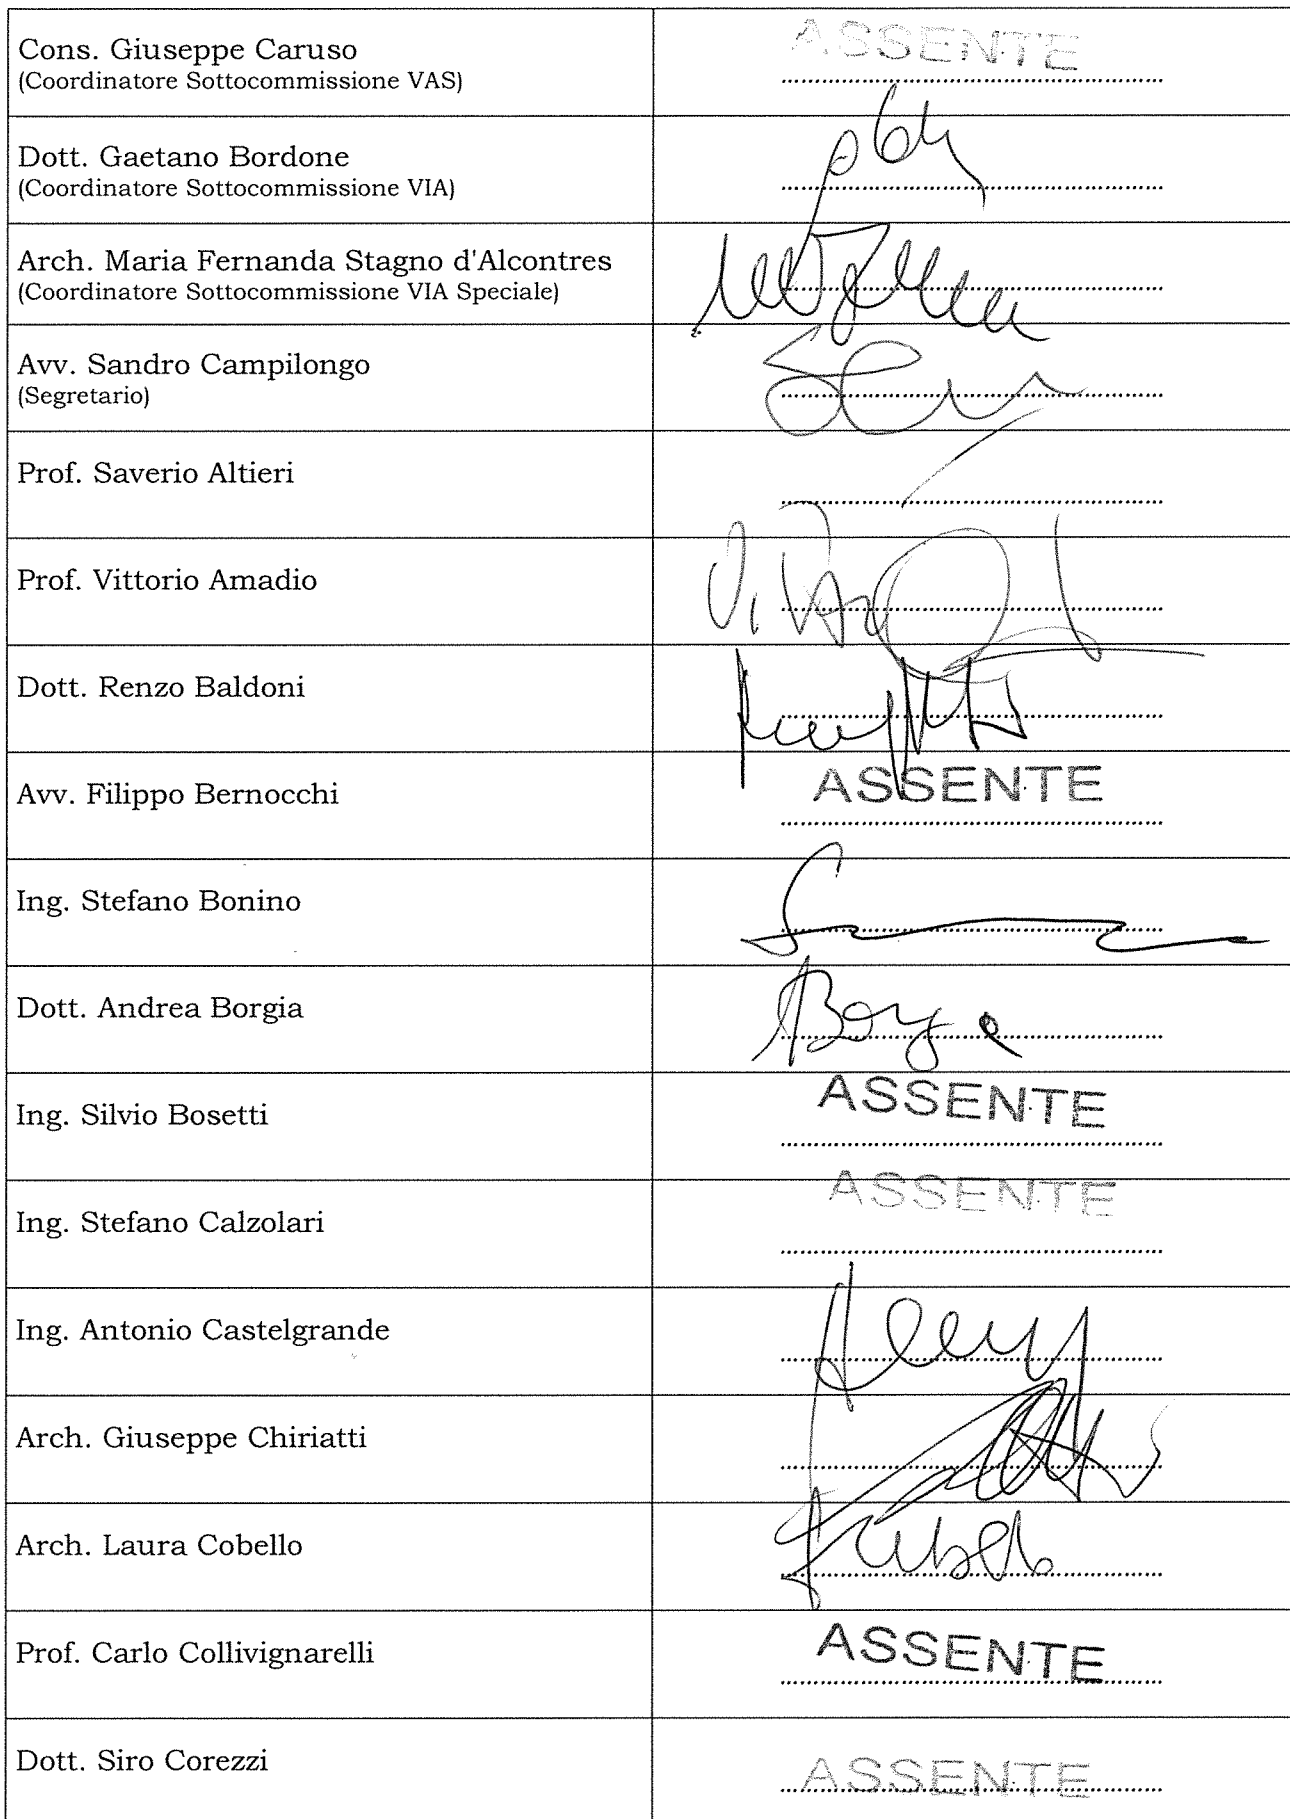 Cons. Giuseppe Caruso
(Coordinatore Sottocommissione VAS)
ASSENTE
Dott. Gaetano Bordone
(Coordinatore Sottocommissione VIA)
Arch. Maria Fernanda Stagno d'Alcontres
(Coordinatore Sottocommissione VIA Speciale)
Avv. Sandro Campilongo
(Segretario)
Prof. Saverio Altieri
Prof. Vittorio Amadio
Dott. Renzo Baldoni
Avv. Filippo Bernocchi
ASSENTE
Ing. Stefano Bonino
Dott. Andrea Borgia
Ing. Silvio Bosetti
ASSENTE
Ing. Stefano Calzolari
ASSENTE
Ing. Antonio Castelgrande
Arch. Giuseppe Chiriatti
Arch. Laura Cobello
Prof. Carlo Collivignarelli
ASSENTE
Dott. Siro Corezzi
ASSENTE